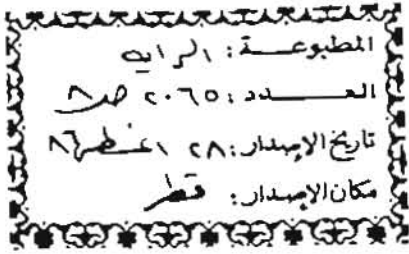 المطبوعة: الراية
العدد: ٢٠٦٥ ص ٨
تاريخ الإصدار: ٢٨ اغسطس ٨٦
مكان الإصدار: قطر